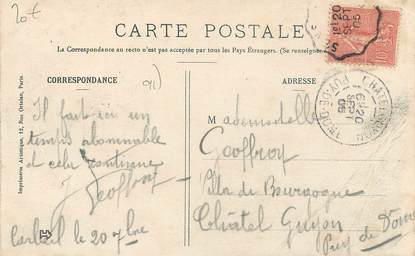 20€
CARTE POSTALE
La Correspondance au recto n'est pas acceptée par tous les Pays Étrangers. (Se renseigner
CORRESPONDANCE
91)
ADRESSE
Il fait ici un
temps abominable
et cela continue
J. Geoffroy
Corbeil le 20 7bre
Mademoiselle
Geoffroy
Villa de Bourgogne
Châtel Guyon
Puy de Dôme
Imprimerie Artistique, 12, Rue Oriolan, Paris
20
SEPT
05
CHATEL-GUYON
PUY-DE-DOME
20
SEPT
05